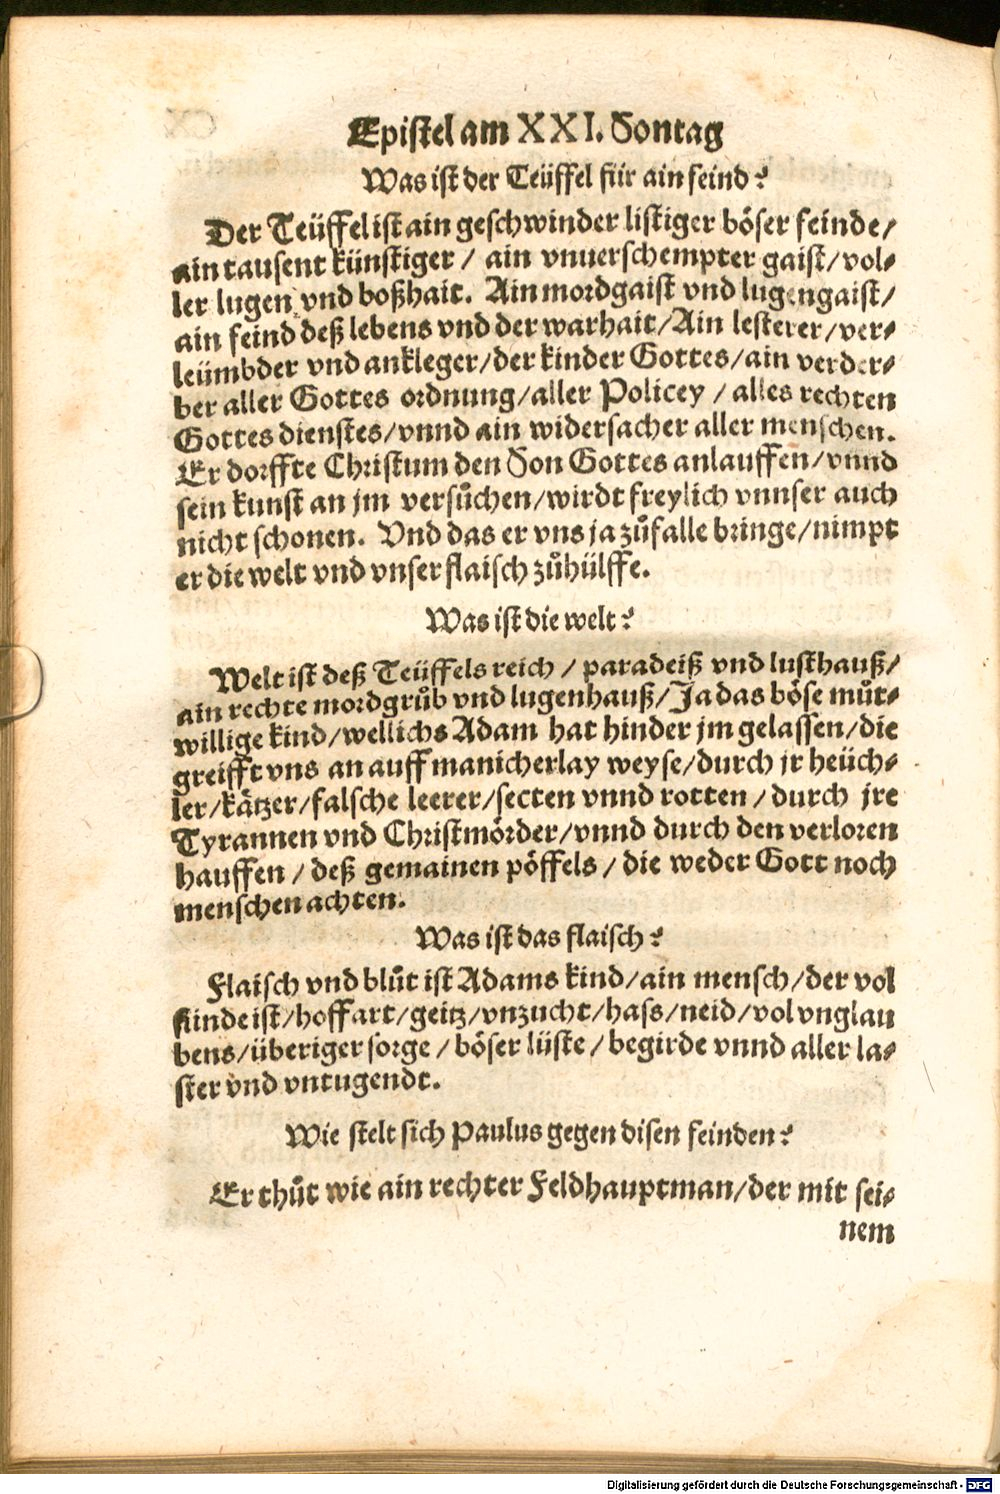 Epistel am XXI. Sontag
Was ist der Teüffel für ain feind?
Der Teüffel ist ain geschwinder listiger böser feinde/
ain tausent künstiger / ain vnuerschempter gaist/ vol-
ler lugen vnd boßhait. Ain mordgaist vnd lugengaist/
ain feind deß lebens vnd der warhait/ Ain lesterer/ ver-
leümbder vnd ankleger/ der kinder Gottes/ ain verder-
ber aller Gottes ordnung/ aller Policey / alles rechten
Gottes dienstes/ vnnd ain widersacher aller menschen.
Er dorffte Christum den Son Gottes anlauffen/ vnnd
sein kunst an jm versůchen/ wirdt freylich vnnser auch
nicht schonen. Vnd das er vns ja zůfalle bringe/ nimpt
er die welt vnd vnser flaisch zůhülffe.
Was ist die welt?
Welt ist deß Teüffels reich / paradeiß vnd lusthauß/
ain rechte mordgrůb vnd lugenhauß/ Ja das böse můt-
willige kind/ wellichs Adam hat hinder jm gelassen/ die
greifft vns an auff manicherlay weyse/ durch jr heüch-
ler/ kätzer/ falsche leerer/ secten vnnd rotten / durch jre
Tyrannen vnd Christmörder/ vnnd durch den verloren
hauffen / deß gemainen pöffels / die weder Gott noch
menschen achten.
Was ist das flaisch?
Flaisch vnd blůt ist Adams kind/ ain mensch/ der vol
sünde ist/ hoffart/ geitz/ vnzucht/ hass/ neid/ vol vnglau
bens/ überiger sorge / böser lüste / begirde vnnd aller la-
ster vnd vntugendt.
Wie stelt sich Paulus gegen disen feinden?
Er thůt wie ain rechter Feldhauptman/ der mit sei-
nem
Digitalisierung gefördert durch die Deutsche Forschungsgemeinschaft - DFG